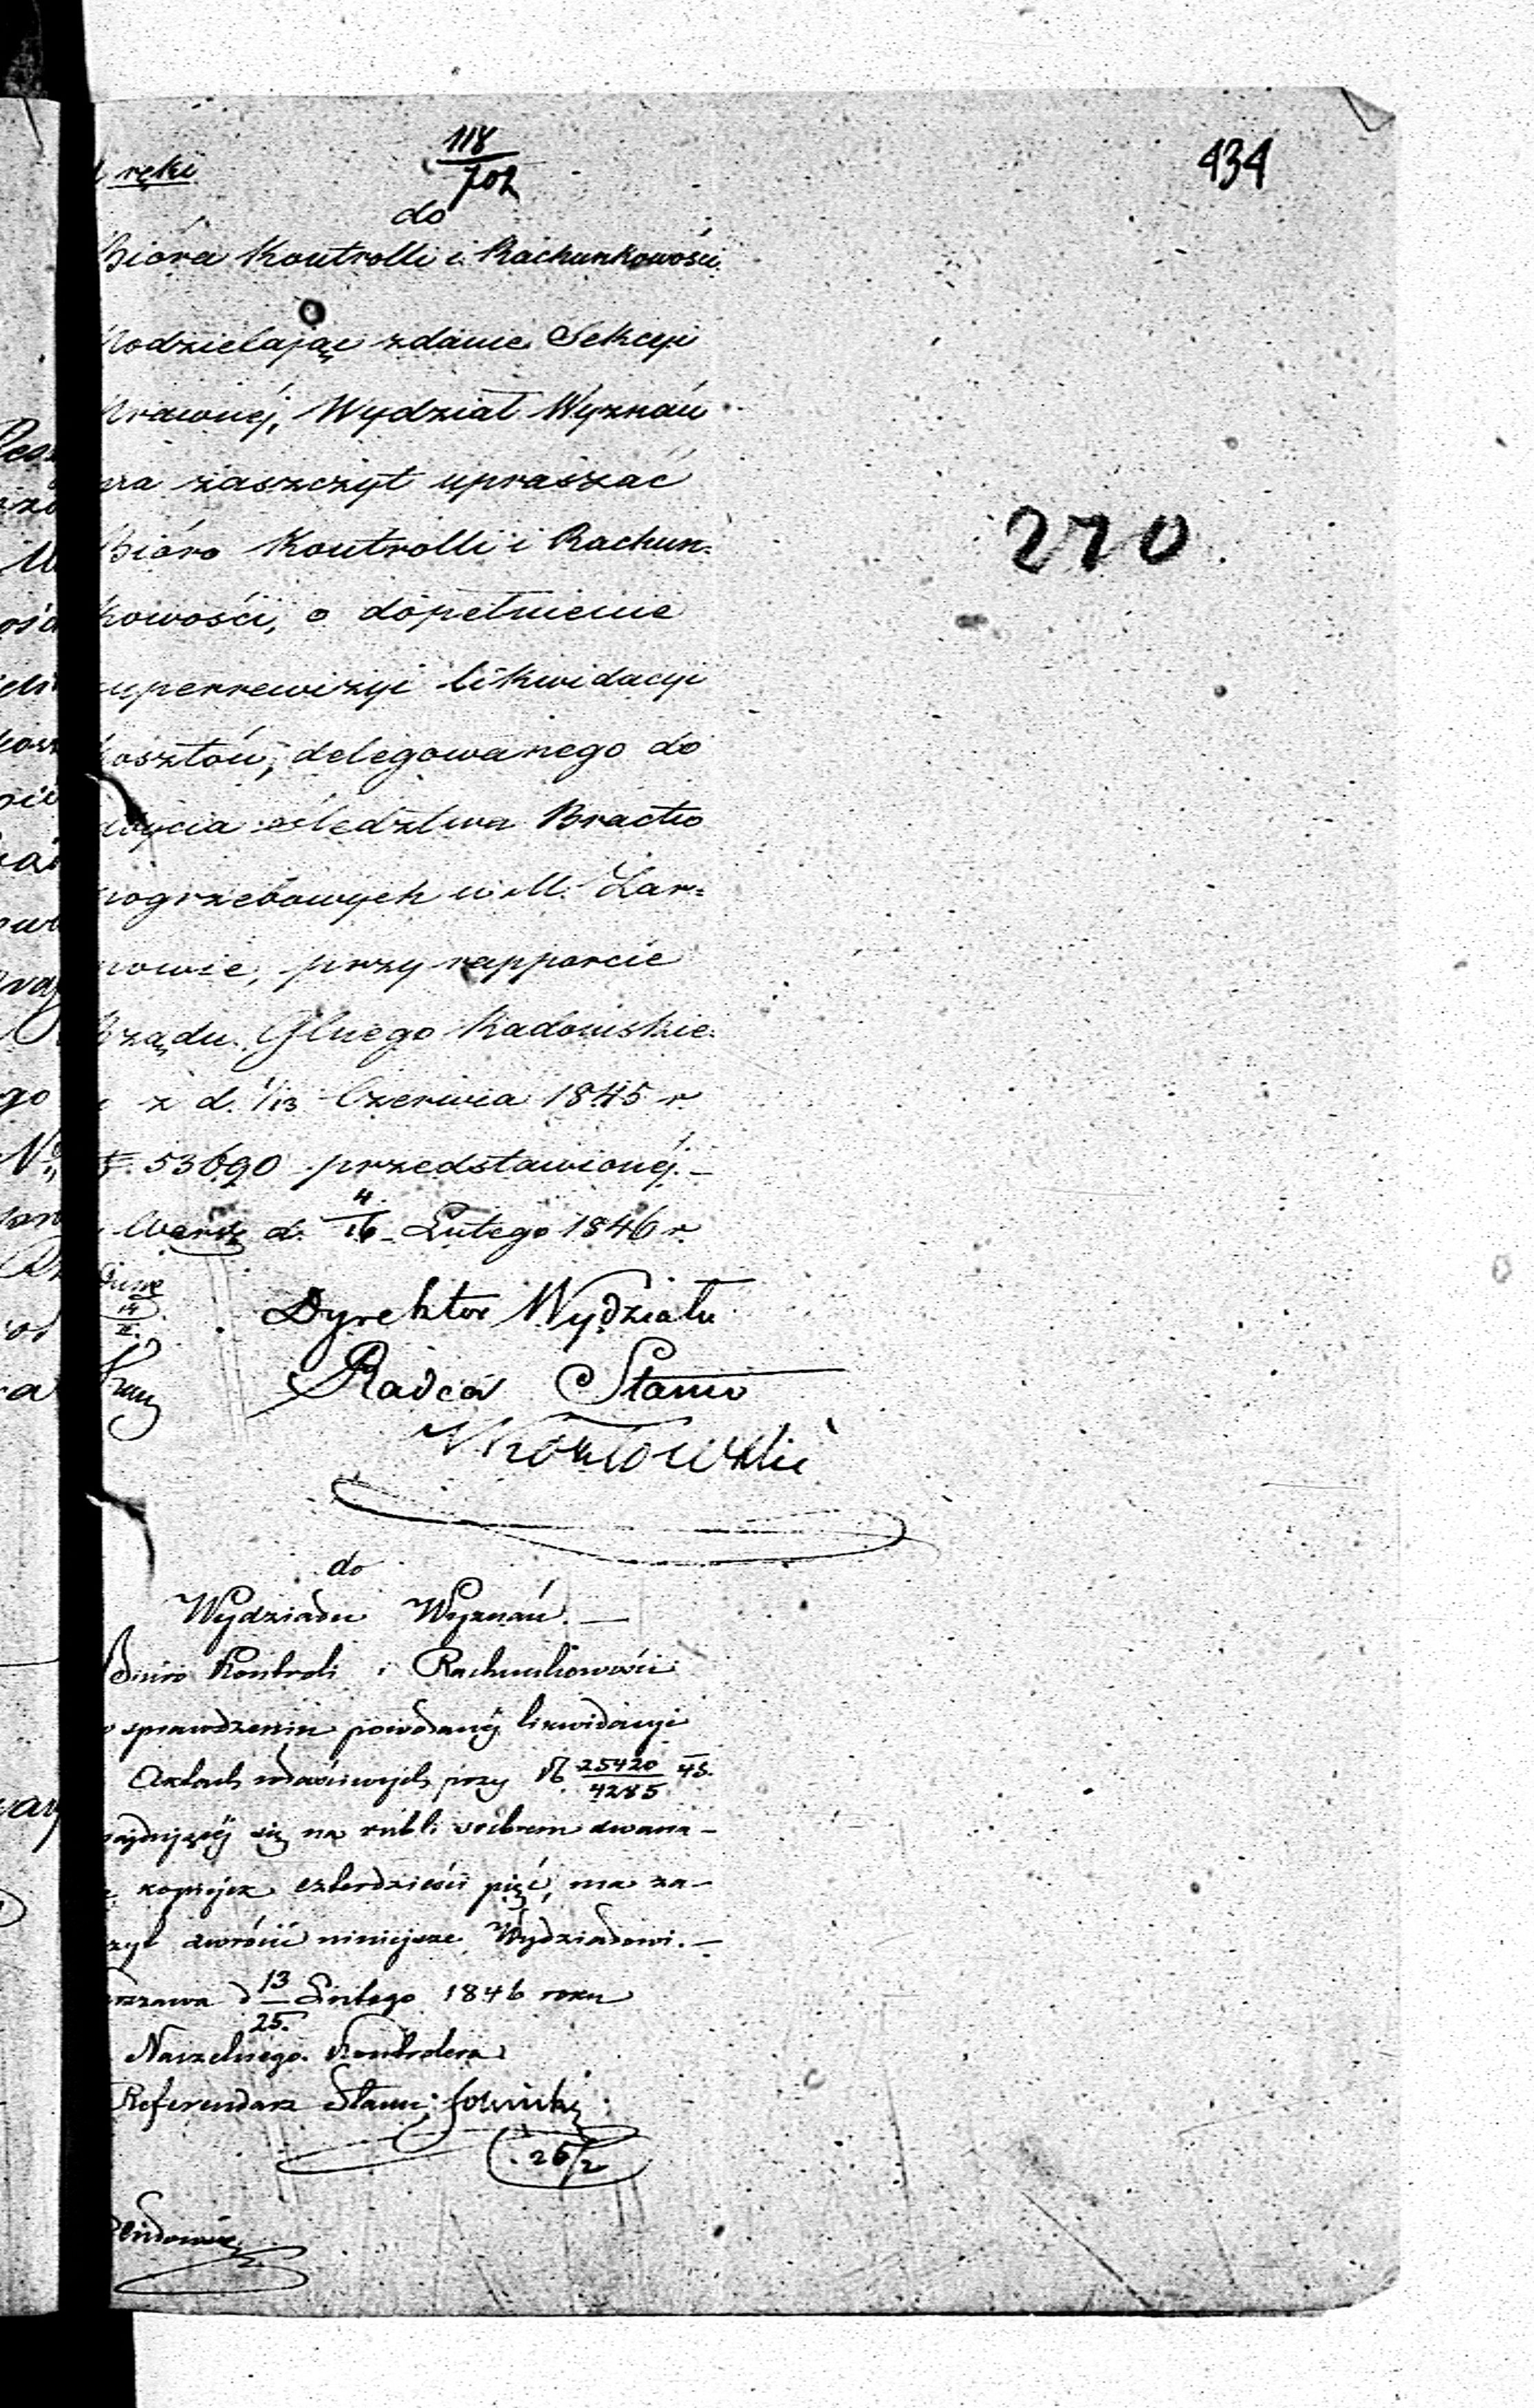 ręki
118/702
434
do
Bióra Kontrolli i Rachunkowości
Podzielając zdanie Sekcyi
Prawnéj, Wydział Wyznań
ma zaszczyt upraszać
Bióro Kontrolli i Rachun=
270
kowości, o dopełnienie
uperrewizyi likwidacyi
kosztów, delegowanego do
dbycia śledztwa Bractw
pogrzebowych w M. Żar=
nowie, przy rapporcie
Rządu Gluego Radomskie=
z d. 1/13 Czerwca 1845 r
53690 przedstawionéj.—
Warsz d. 4/16 Lutego 1846 r.
Dyrektor Wydziału
Radca Stanu
do
Wydziału Wyznań.—
Biuro Kontroli i Rachunkowości
po sprawdzeniu powołanéj likwidacyi
Aktach właściwych przy N 25420/4285 45.
znajdującéj się na rubli srebrem dwana—
kopiejek czterdzieści pięć, ma za—
zczyt zwrócić niniejsze Wydziałowi.—
rszawa d 13/25. Lutego 1846 roku
Naczelnego Kontrolera
Referendarz Stanu
26/2